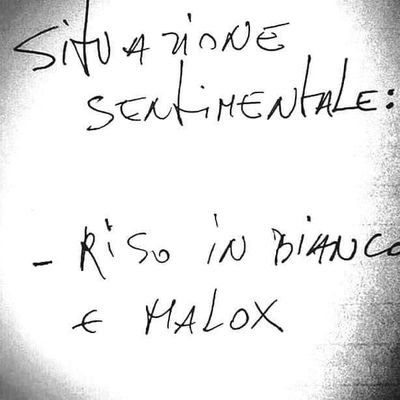 SITUAZIONE
SENTIMENTALE:
- RISO IN BIANCO
E MALOX